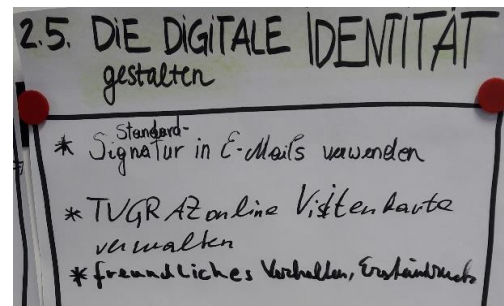 2.5. DiE DiGiTALE IDENTITÄT
gestalten
Standard-
* Signatur in E-Mails verwenden
* TUGRAZonline Visitenkarte
verwalten
* freundliches Verhalten, Ersteindruck